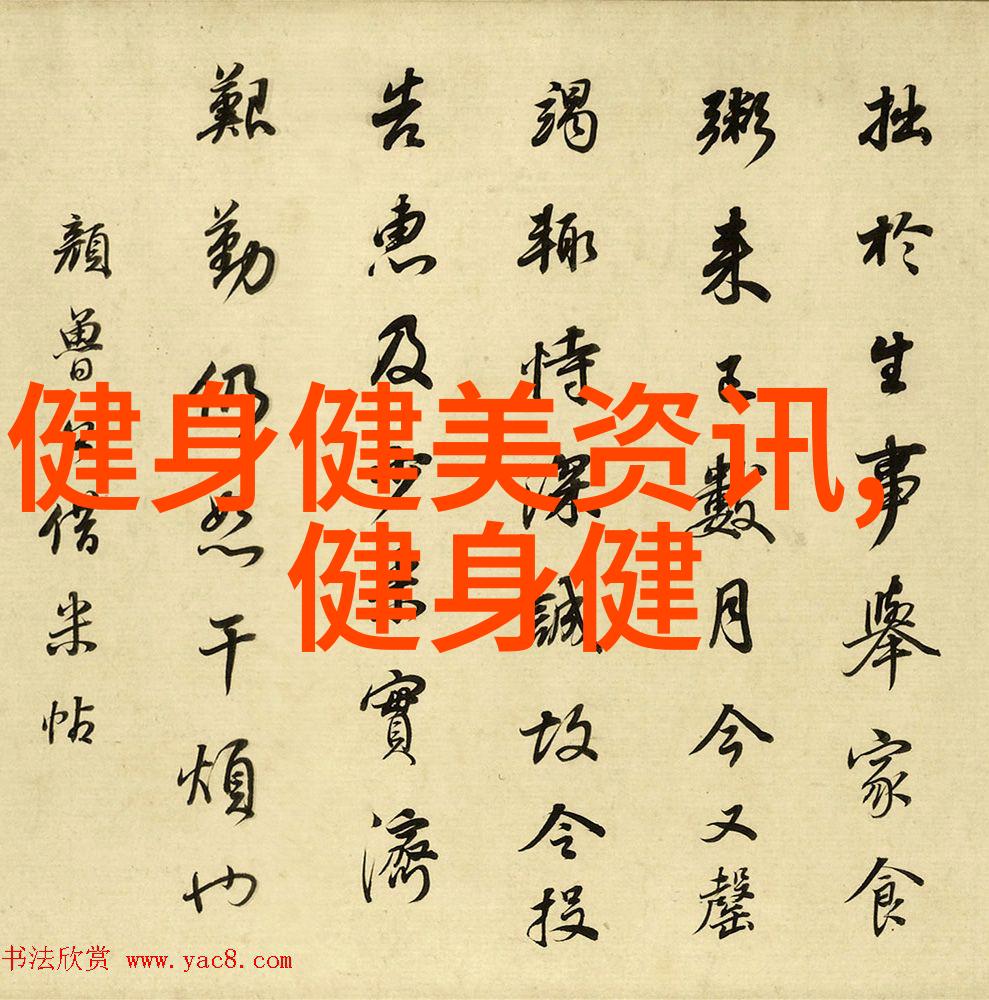 拙於生事舉家食
粥来已數月今又罄
竭輙恃深誠故令投
告惠及少米實濟
艱勤仍恕干煩也
顏魯公借米帖
健身健美资讯,
健身健
书法欣赏 www.yac8.com